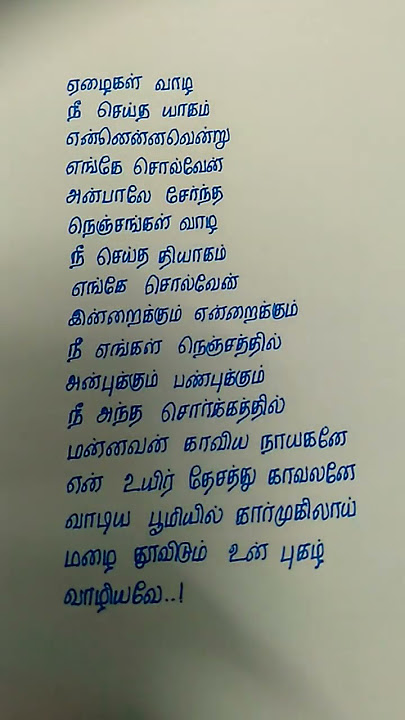 ஏழைகள் வாடி
நீ செய்த யாகம்
என்னென்னவென்று
எங்கே சொல்வேன்
அன்பாலே சேர்ந்த
நெஞ்சங்கள் வாடி
நீ செய்த தியாகம்
எங்கே சொல்வேன்
இன்றைக்கும் என்றைக்கும்
நீ எங்கள் நெஞ்சத்தில்
அன்புக்கும் பண்புக்கும்
நீ அந்த சொர்க்கத்தில்
மன்னவன் காவிய நாயகனே
என் உயிர் தேசத்து காவலனே
வாடிய பூமியில் கார்முகிலாய்
மழை தூவிடும் உன் புகழ்
வாழியவே..!